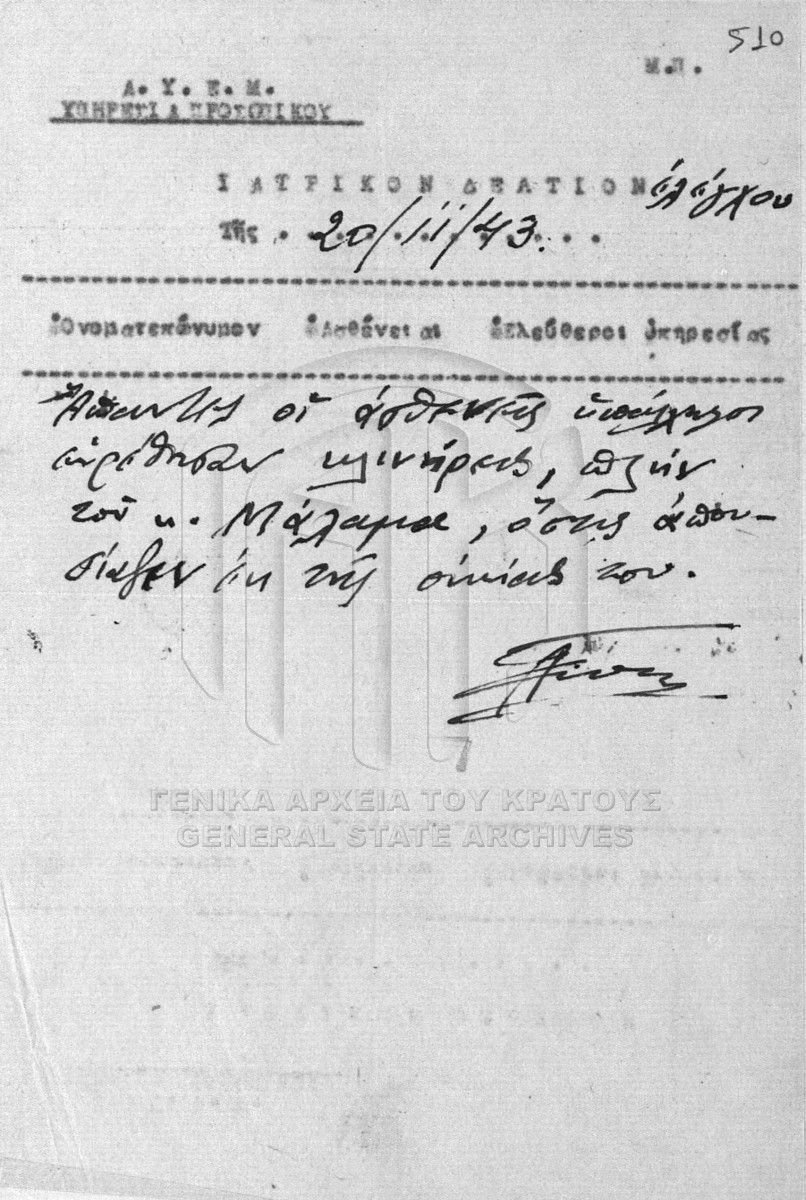 510
Μ.Π.
Α. Υ. Ε. Μ.
ΥΠΗΡΕΣΙΑ ΠΡΟΣΩΠΙΚΟΥ
ΙΑΤΡΙΚΟΝ ΔΕΛΤΙΟΝ ἐλέγχου
Τῆς . 20/11/43. . .
Ὀνοματεπώνυμον Ἀσθένειαι Ἐλεύθεροι ὑπηρεσίας
Ἅπαντες οἱ ἀσθενεῖς ὑπάλληλοι
εὑρέθησαν κλινήρεις, πλὴν
τοῦ κ. Μάλαμα, ὅστις ἀπου-
σίαζεν ἐκ τῆς οἰκίας του.
ΓΕΝΙΚΑ ΑΡΧΕΙΑ ΤΟΥ ΚΡΑΤΟΥΣ
GENERAL STATE ARCHIVES